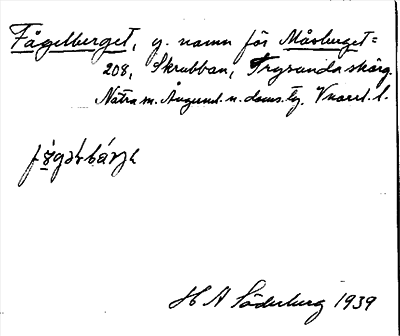 Fågelberget, y. namn för Måsberget =
208, Skrubban, Trysunda skärg.
Nätra m. Ångerml. n. doms. tg. Vnorrl. l.
H A Söderberg 1939